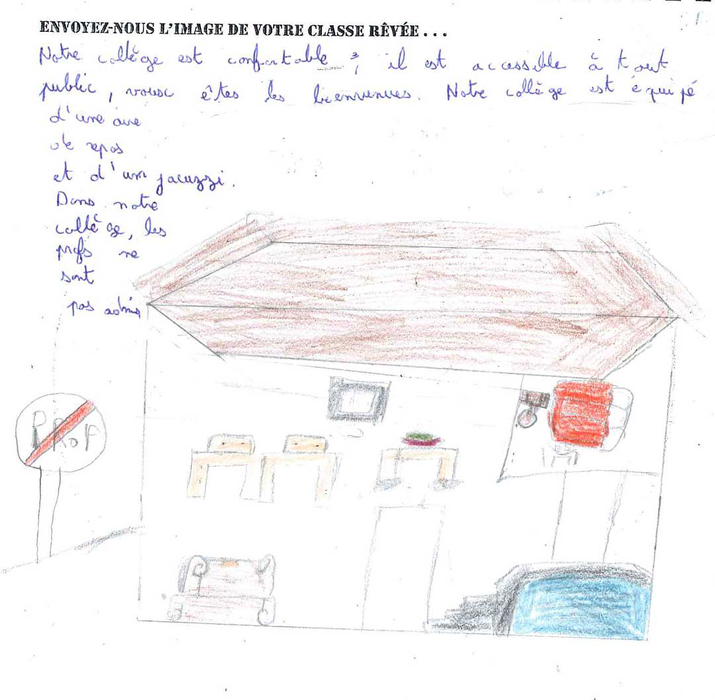 ENVOYEZ-NOUS L'IMAGE DE VOTRE CLASSE RÊVÉE . . .
Notre collège est confortable ; il est accessible à tout
public, vousc êtes les bienvenues. Notre collège est équipé
d'une aire
de repos
et d'um jacuzzi.
Dans notre
collège, les
profs ne
sont
pas admis
PROF